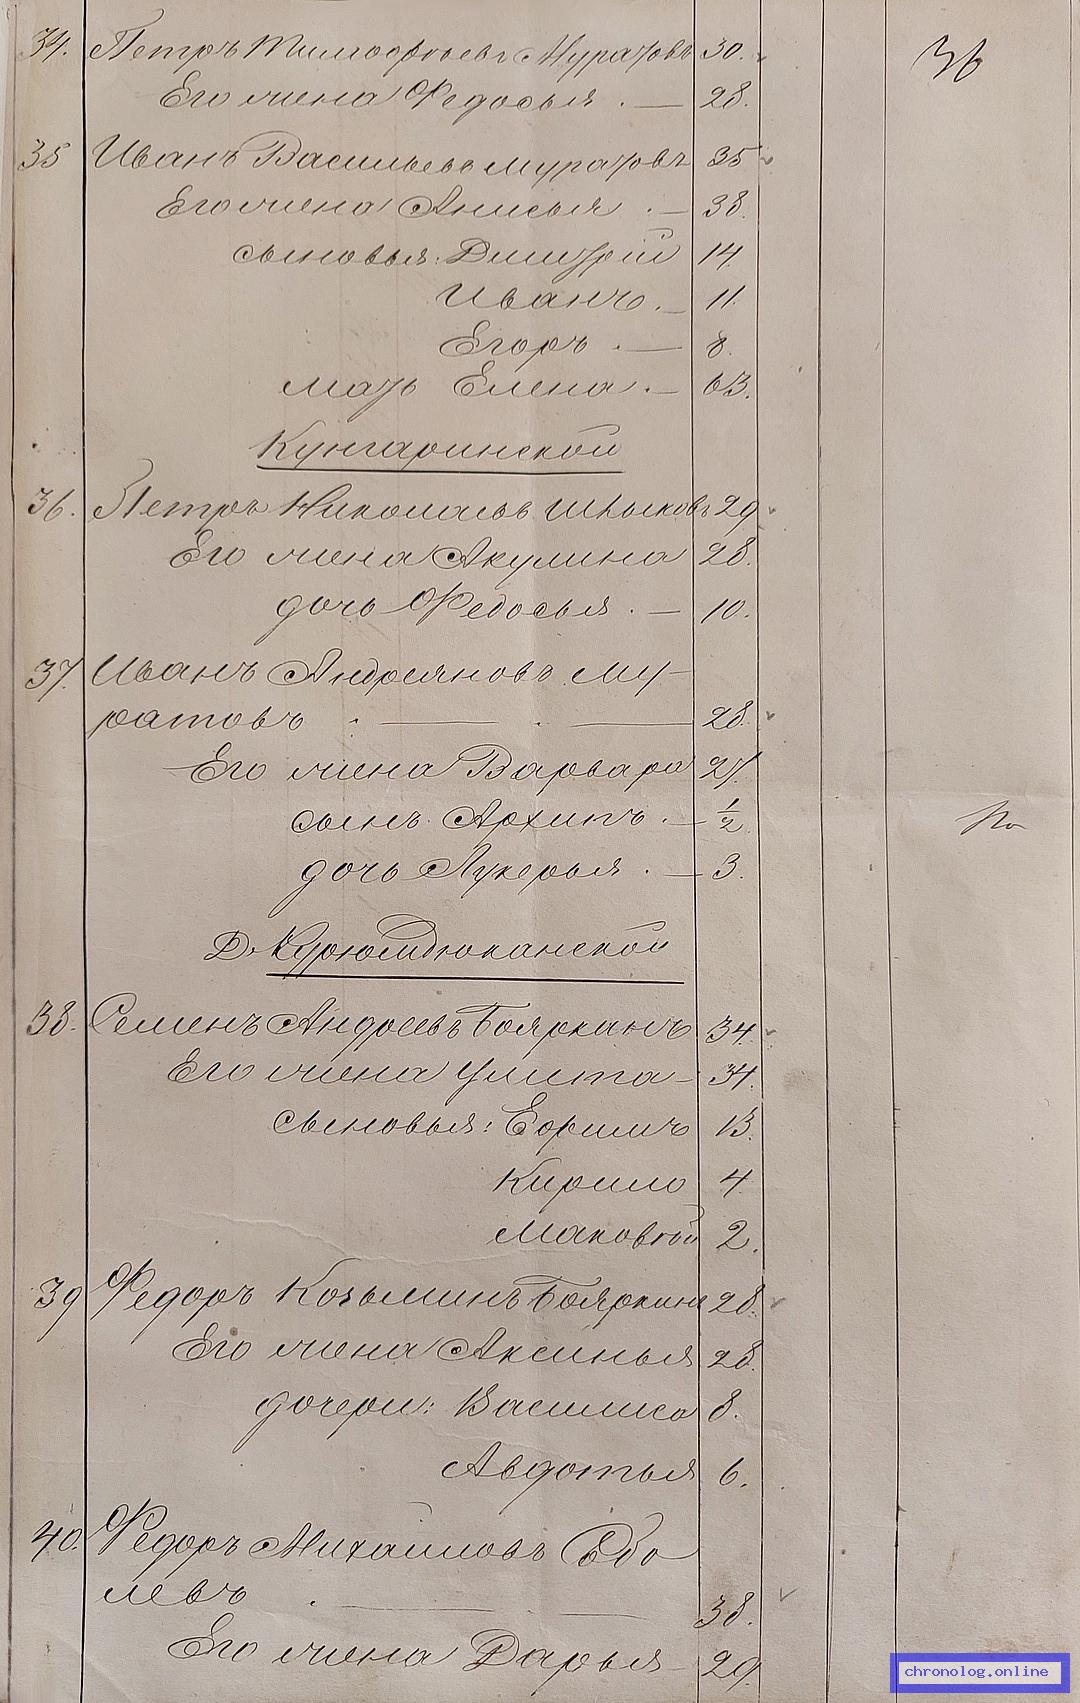 34. Петръ Тимофѣевъ Муратовъ 30.
36
Его жена Федосья . — 28.
35 Иванъ Васильевъ Муратовъ 35
Его жена Анисья . — 38.
сыновья: Дмитрій 14.
Иванъ . — 11.
Егоръ . — 8.
мать Елена . — 63.
Кунгаринской
36. Петръ Николаевъ 29
Его жена Акулина 28.
дочь Федосья . — 10.
37. Иванъ Андреяновъ Му-
ратовъ . — . — 28.
Его жена Варвара 27.
сынъ Архипъ . — 1/2
дочь Лукерья . — 3.
Д. Курюмдюканской
38. Семенъ Андреевъ Бояркинъ 34.
Его жена Улита — 34.
сыновья: Ефримъ 13.
Кирило 4.
Маковѣй 2.
39 Федоръ Козьминъ Бояркинъ 28.
Его жена Аксинья 28.
дочери: Василиса 8.
Авдотья 6.
40. Федоръ Михайловъ
левъ . — — 38.
Его жена Дарья 29.
chronolog.online